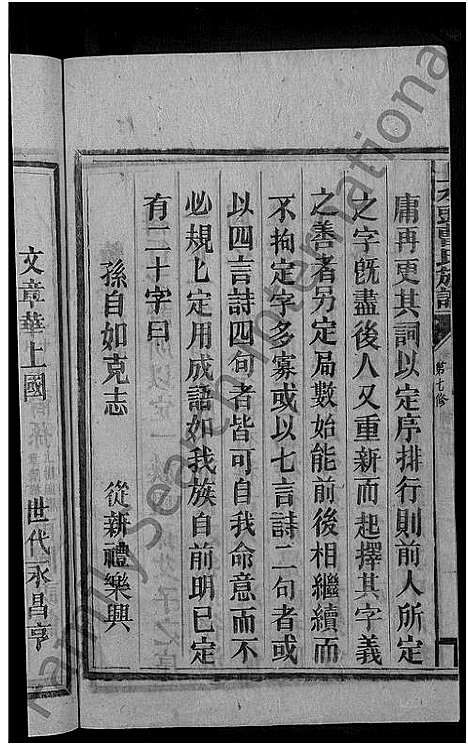 庸再更其詞以定序排行則前人所定
之字旣盡後人又重新而起擇其字義
之善者另定局數始能前後相繼續而
不拘定字多寡或以七言詩二句者或
以四言詩四句者皆可自我命意而不
必規上定用成語如我族自前明已定
有二十字曰
孫自如克志 從新禮樂興
文章華上國 世代永昌亨
曹氏族譜
第七修
Family Search International